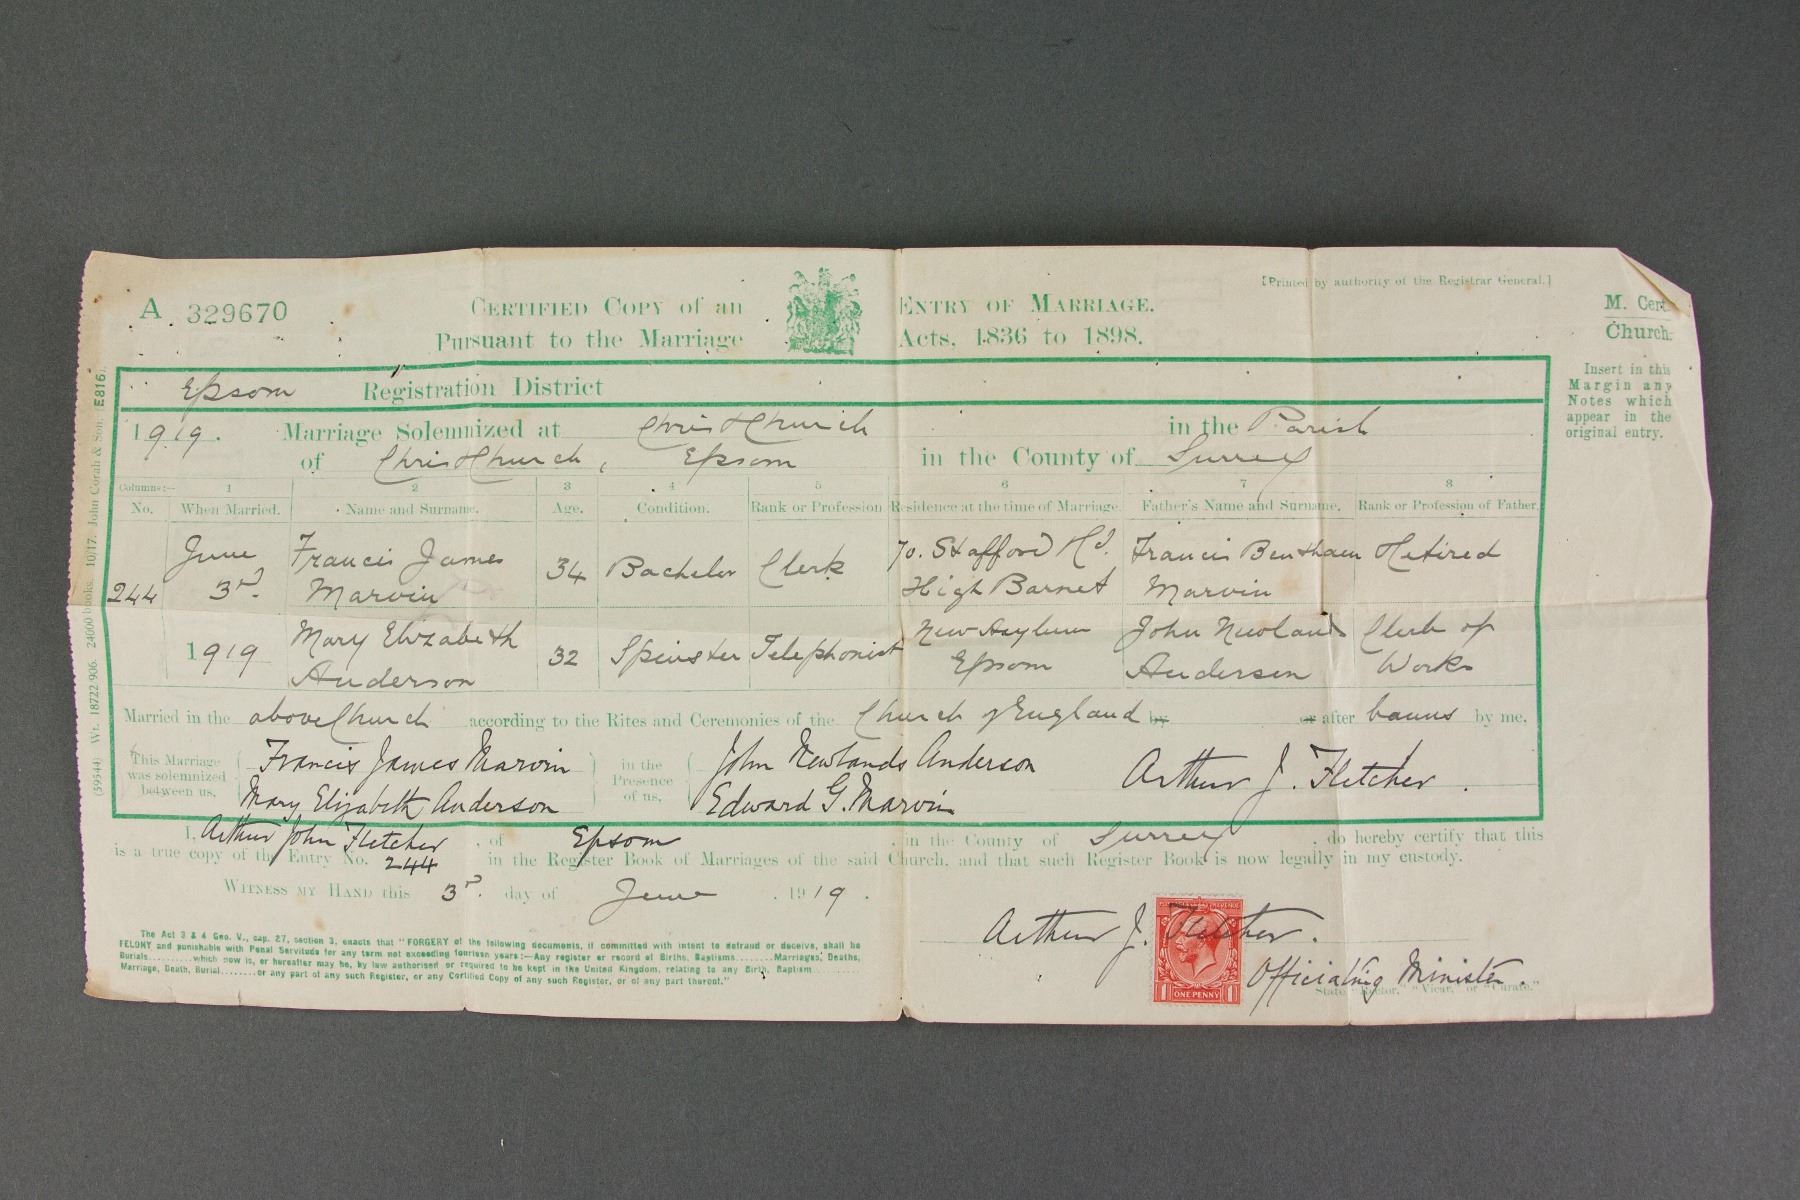 [Printed by authority of the Registrar General.]
A 329670
CERTIFIED COPY of an ENTRY OF MARRIAGE.
Pursuant to the Marriage Acts, 1836 to 1898.
M. Cert.
Church.
Insert in this
Margin any
Notes which
appear in the
original entry.
(59544) Wt. 18722/906. 24000 books. 10/17. John Corah & Son. (E816).
Epsom Registration District
1919. Marriage Solemnized at Christ Church in the Parish
of Christ Church, Epsom in the County of Surrey
Columns:— 1 2 3 4 5 6 7 8
No. When Married. Name and Surname. Age. Condition. Rank or Profession Residence at the time of Marriage. Father's Name and Surname. Rank or Profession of Father.
June Francis James 34 Bachelor Clerk 70. Stafford Rd. Francis Bentham Retired
244 3rd. Marvin High Barnet Marvin
1919 Mary Elizabeth 32 Spinster Telephonist New Asylum John Newlands Clerk of
Anderson Epsom Anderson Works
Married in the above Church according to the Rites and Ceremonies of the Church of England by or after banns by me,
This Marriage
was solemnized
between us,
Francis James Marvin
Mary Elizabeth Anderson
in the
Presence
of us,
John Newlands Anderson
Edward G. Marvin
Arthur J. Fletcher.
I, Arthur John Fletcher, of Epsom, in the County of Surrey, do hereby certify that this
is a true copy of the Entry No. 244 in the Register Book of Marriages of the said Church, and that such Register Book is now legally in my custody.
WITNESS MY HAND this 3rd. day of June, 1919.
Arthur J. Fletcher.
Officiating Minister.
State "Rector," "Vicar," or "Curate."
ONE PENNY
1 1
The Act 3 & 4 Geo. V., cap. 27, section 3, enacts that "FORGERY of the following documents, if committed with intent to defraud or deceive, shall be
FELONY and punishable with Penal Servitude for any term not exceeding fourteen years:—Any register or record of Births, Baptisms........Marriages, Deaths,
Burials........which now is, or hereafter may be, by law authorised or required to be kept in the United Kingdom, relating to any Birth, Baptism........
Marriage, Death, Burial........or any part of any such Register, or any Certified Copy of any such Register, or of any part thereof."